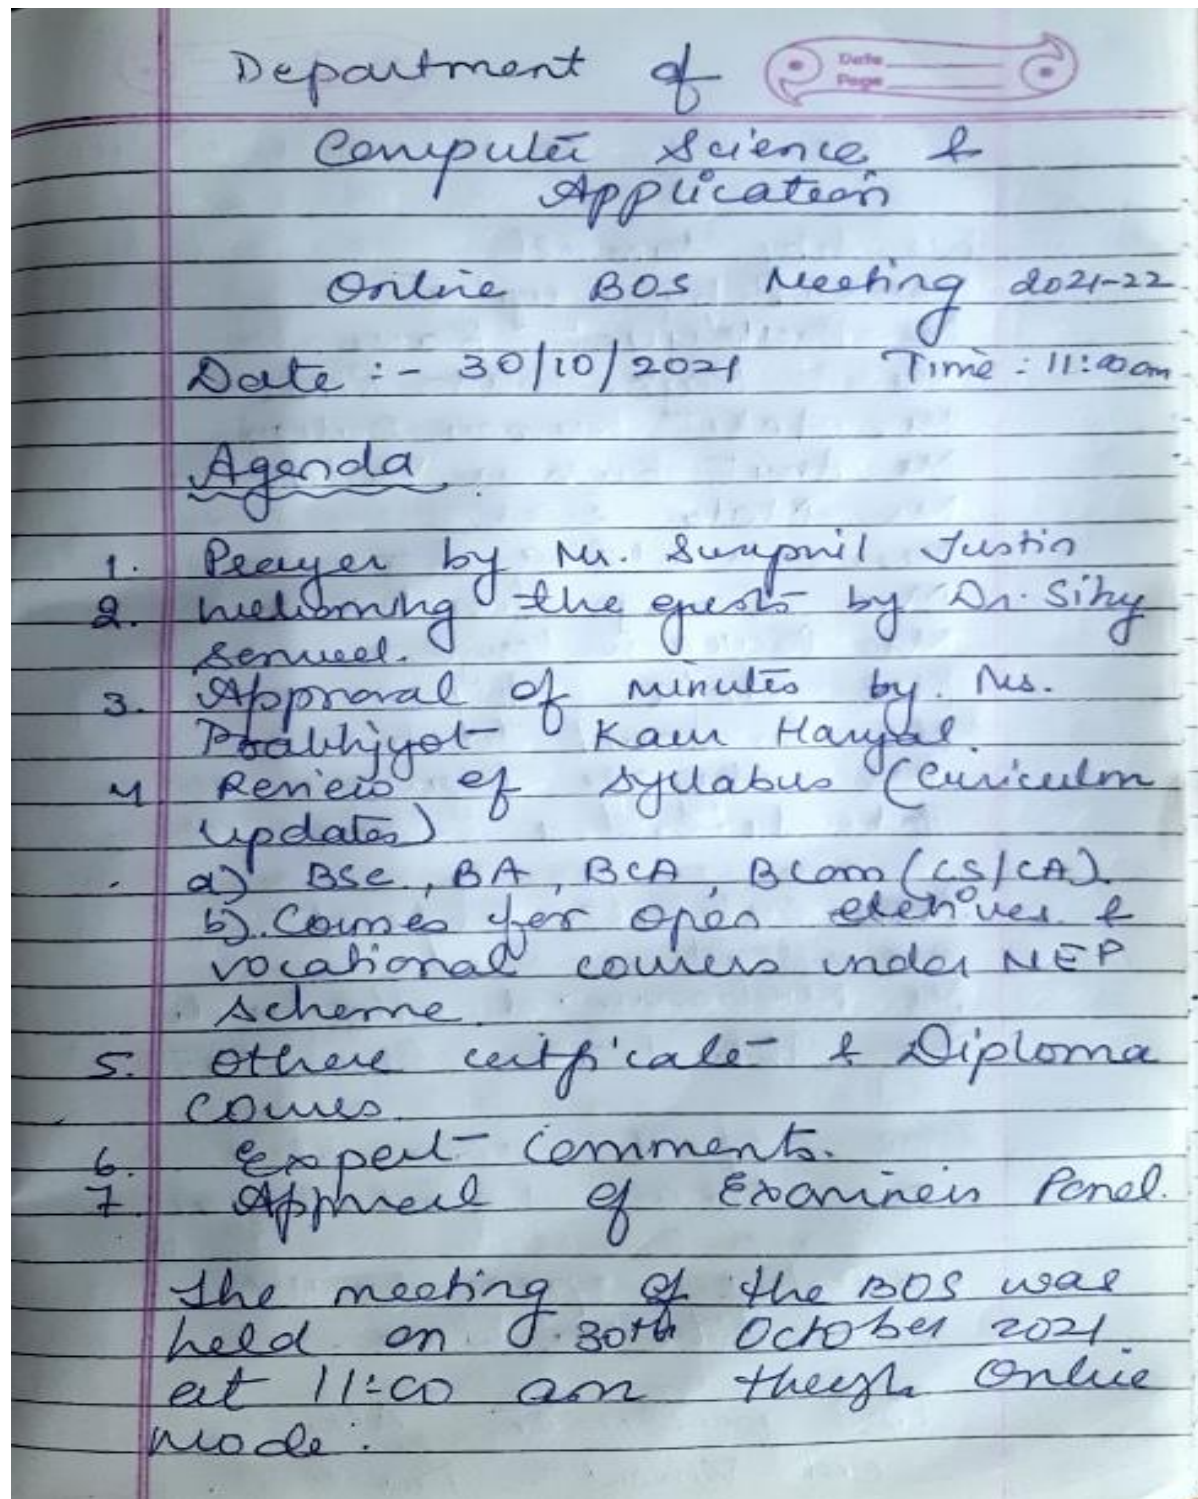 Department of
Date
Page
Computer Science &
Application
Online BOS Meeting 2021-22
Date :- 30/10/2021 Time : 11:00am
Agenda
1. Prayer by Mr. Swapnil Justin
2. Welcoming the guests by Dr. Siby
Samuel.
3. Approval of minutes by. Ms.
Prabhjyot Kaur Haryal.
4 Review of syllabus (Curriculum
updates)
a) BSc, BA, BCA, BCom (CS/CA).
b). Courses for open electives &
vocational courses under NEP
scheme.
5. Other certificate & Diploma
courses.
6. Expert comments.
7. Approval of Examiners Panel.
The meeting of the BOS was
held on 30th October 2021
at 11:00 am through Online
mode.